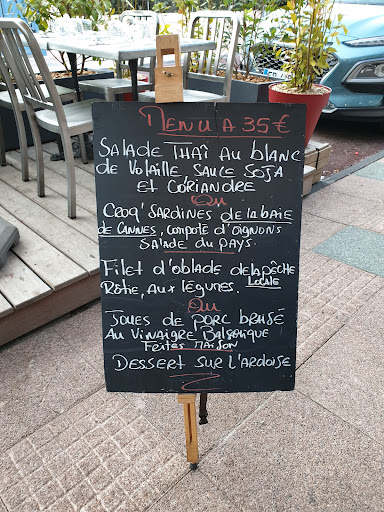 MENU A 35€
SALADE THAÏ AU blanc
de Volaille SAUCE SOJA
ET CORIANDRE
OU
CROQ' SARDINES de la baie
de CANNES, COMPOTÉ D'OIGNONS
SALADE du PAYS.
FILET d'oblade de la PÊCHE
LOCALE
RÔTIE, AUX LÉGUNES.
OU
JOUES DE PORC BRAISÉ
AU VINAIGRE BALSAMIQUE
FAITES MAISON
DESSERT SUR L'ARDOISE